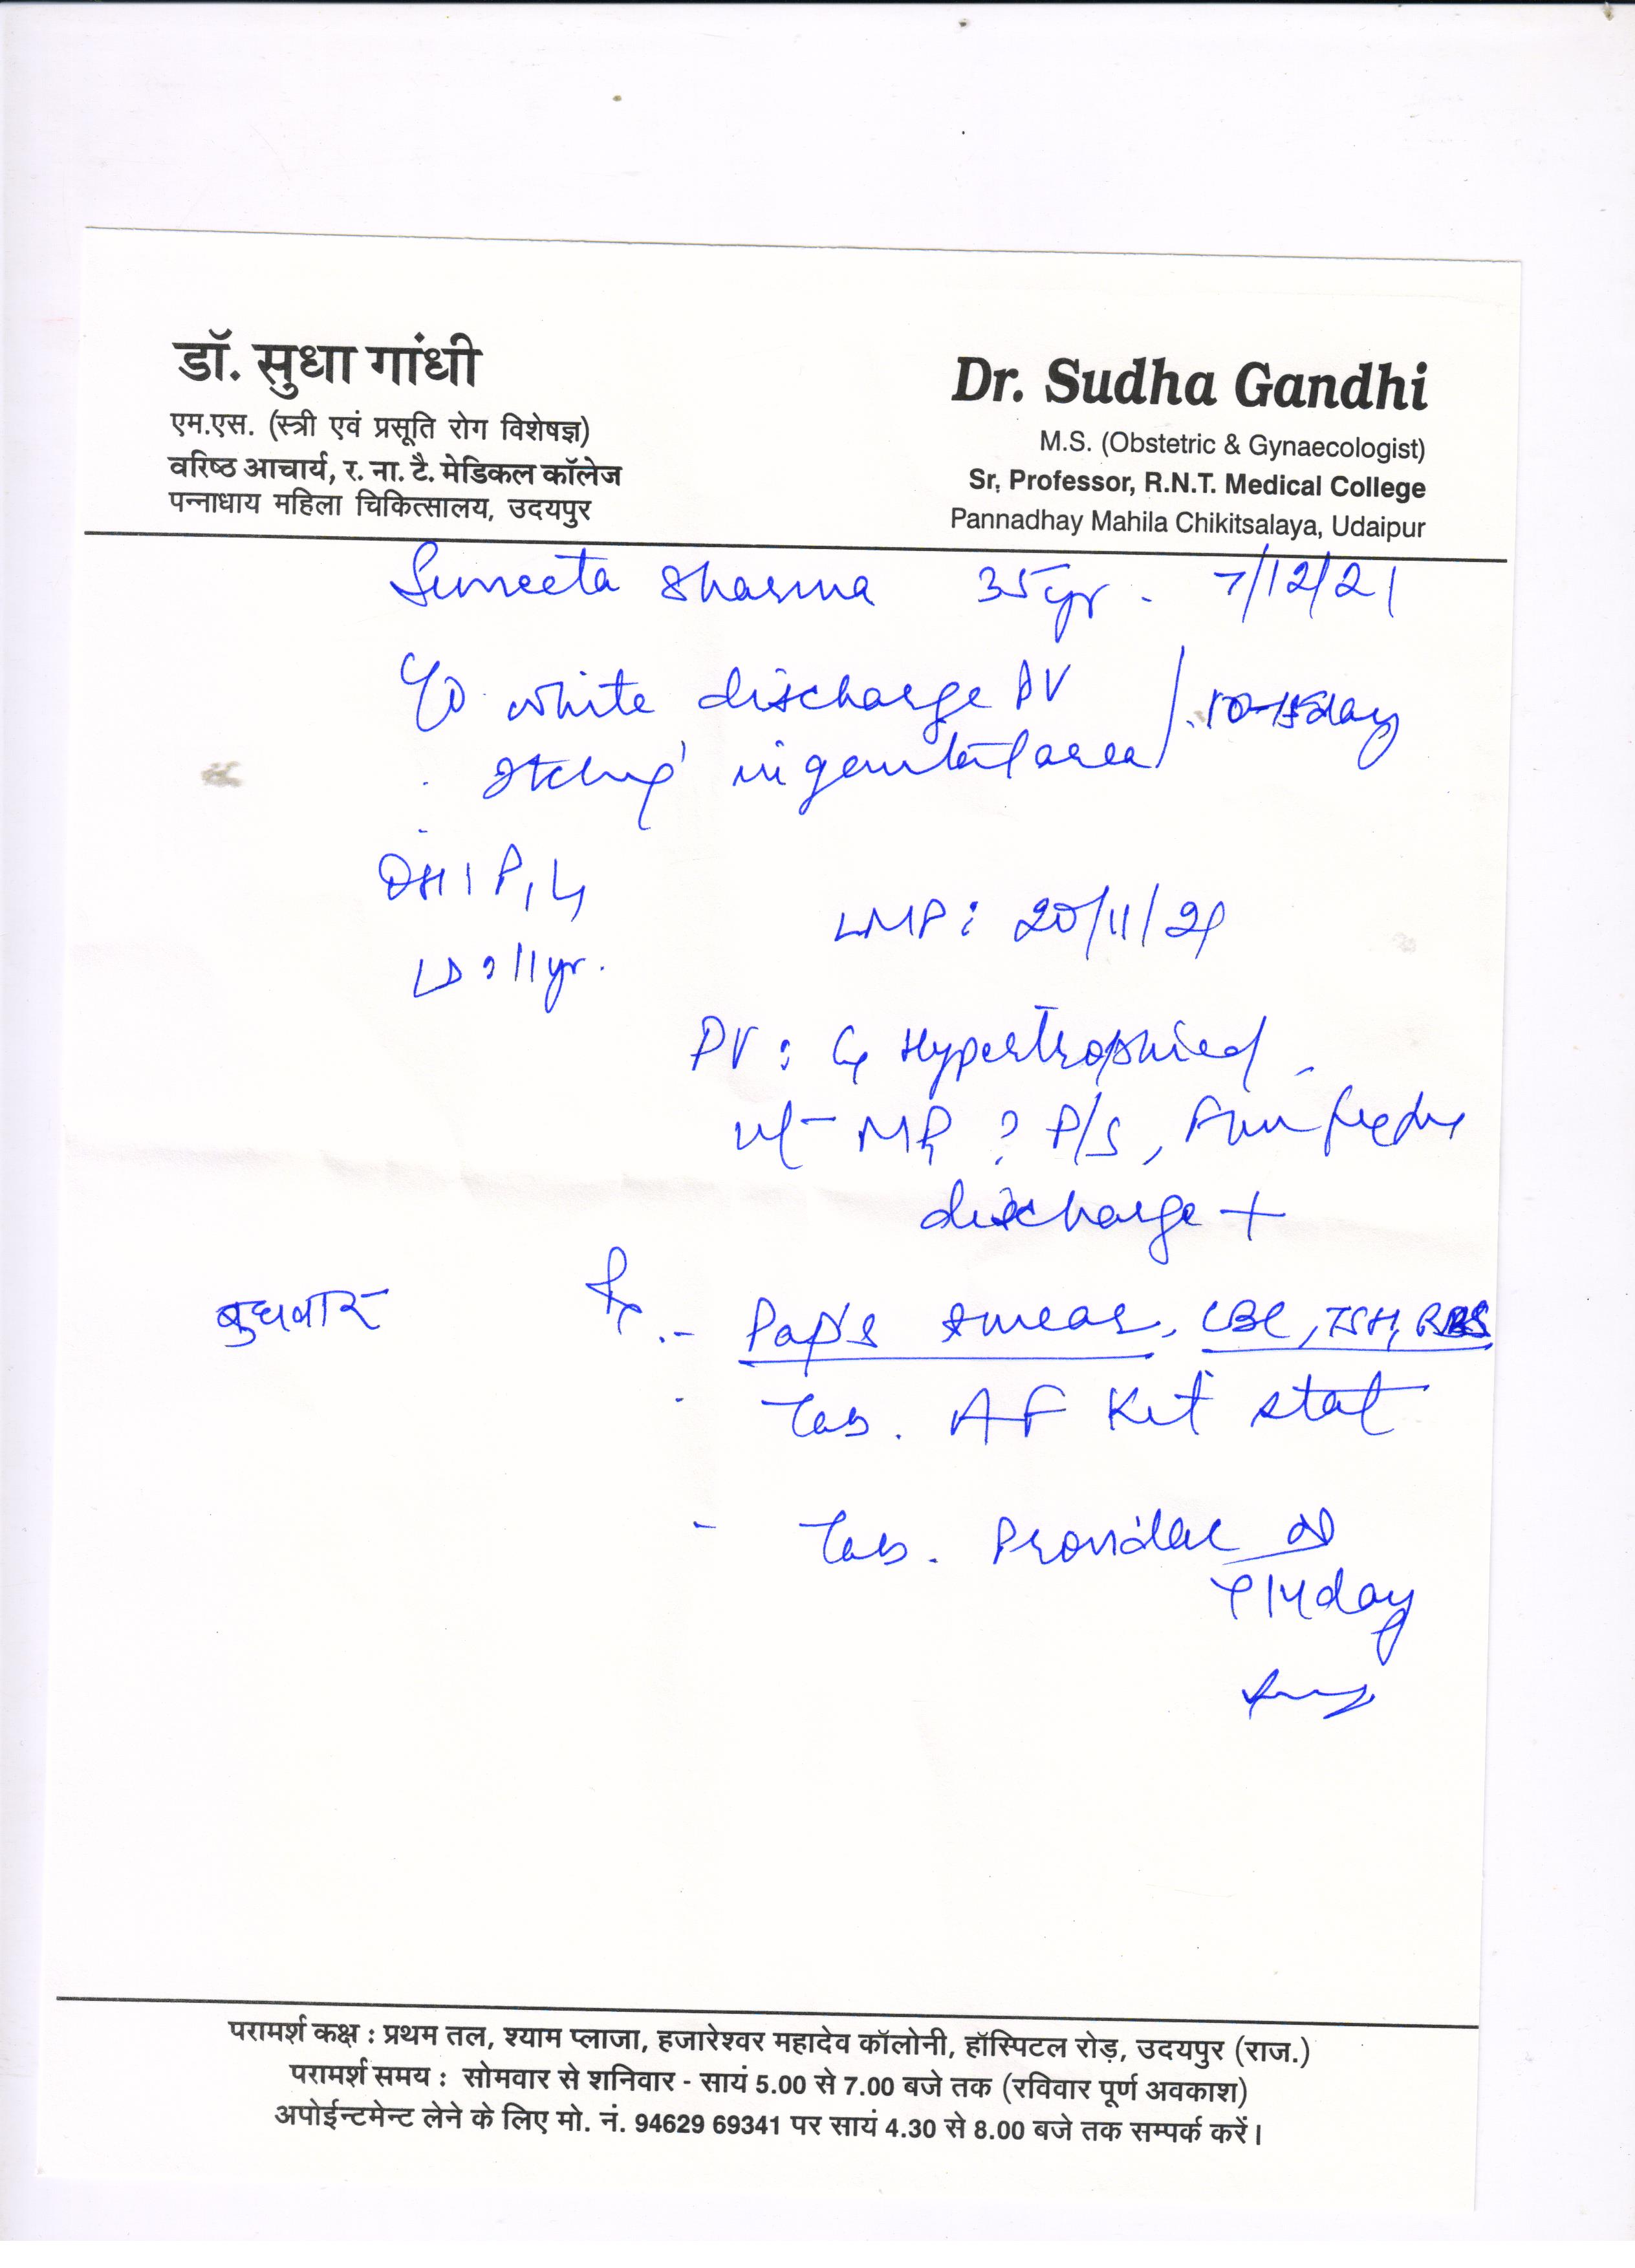 डॉ. सुधा गांधी
एम.एस. (स्त्री एवं प्रसूति रोग विशेषज्ञ)
वरिष्ठ आचार्य, र. ना. टै. मेडिकल कॉलेज
पन्नाधाय महिला चिकित्सालय, उदयपुर
Dr. Sudha Gandhi
M.S. (Obstetric & Gynaecologist)
Sr. Professor, R.N.T. Medical College
Pannadhay Mahila Chikitsalaya, Udaipur
Suneeta Sharma 35 yr. 7/12/21
C/O white discharge PV
Itching in genital area / 10-15 day
OH: P1 L1
LMP: 20/11/21
LD: 11 yr.
PV: Cx Hypertrophied
ut- ? P/S,
discharge +
बुधवार
Rx - Pap's smear, CBC, TSH, RBS
- Tab. AF Kit stat
- Tab. OD
14 day
परामर्श कक्ष : प्रथम तल, श्याम प्लाजा, हजारेश्वर महादेव कॉलोनी, हॉस्पिटल रोड़, उदयपुर (राज.)
परामर्श समय : सोमवार से शनिवार - सायं 5.00 से 7.00 बजे तक (रविवार पूर्ण अवकाश)
अपोईन्टमेन्ट लेने के लिए मो. नं. 94629 69341 पर सायं 4.30 से 8.00 बजे तक सम्पर्क करें।